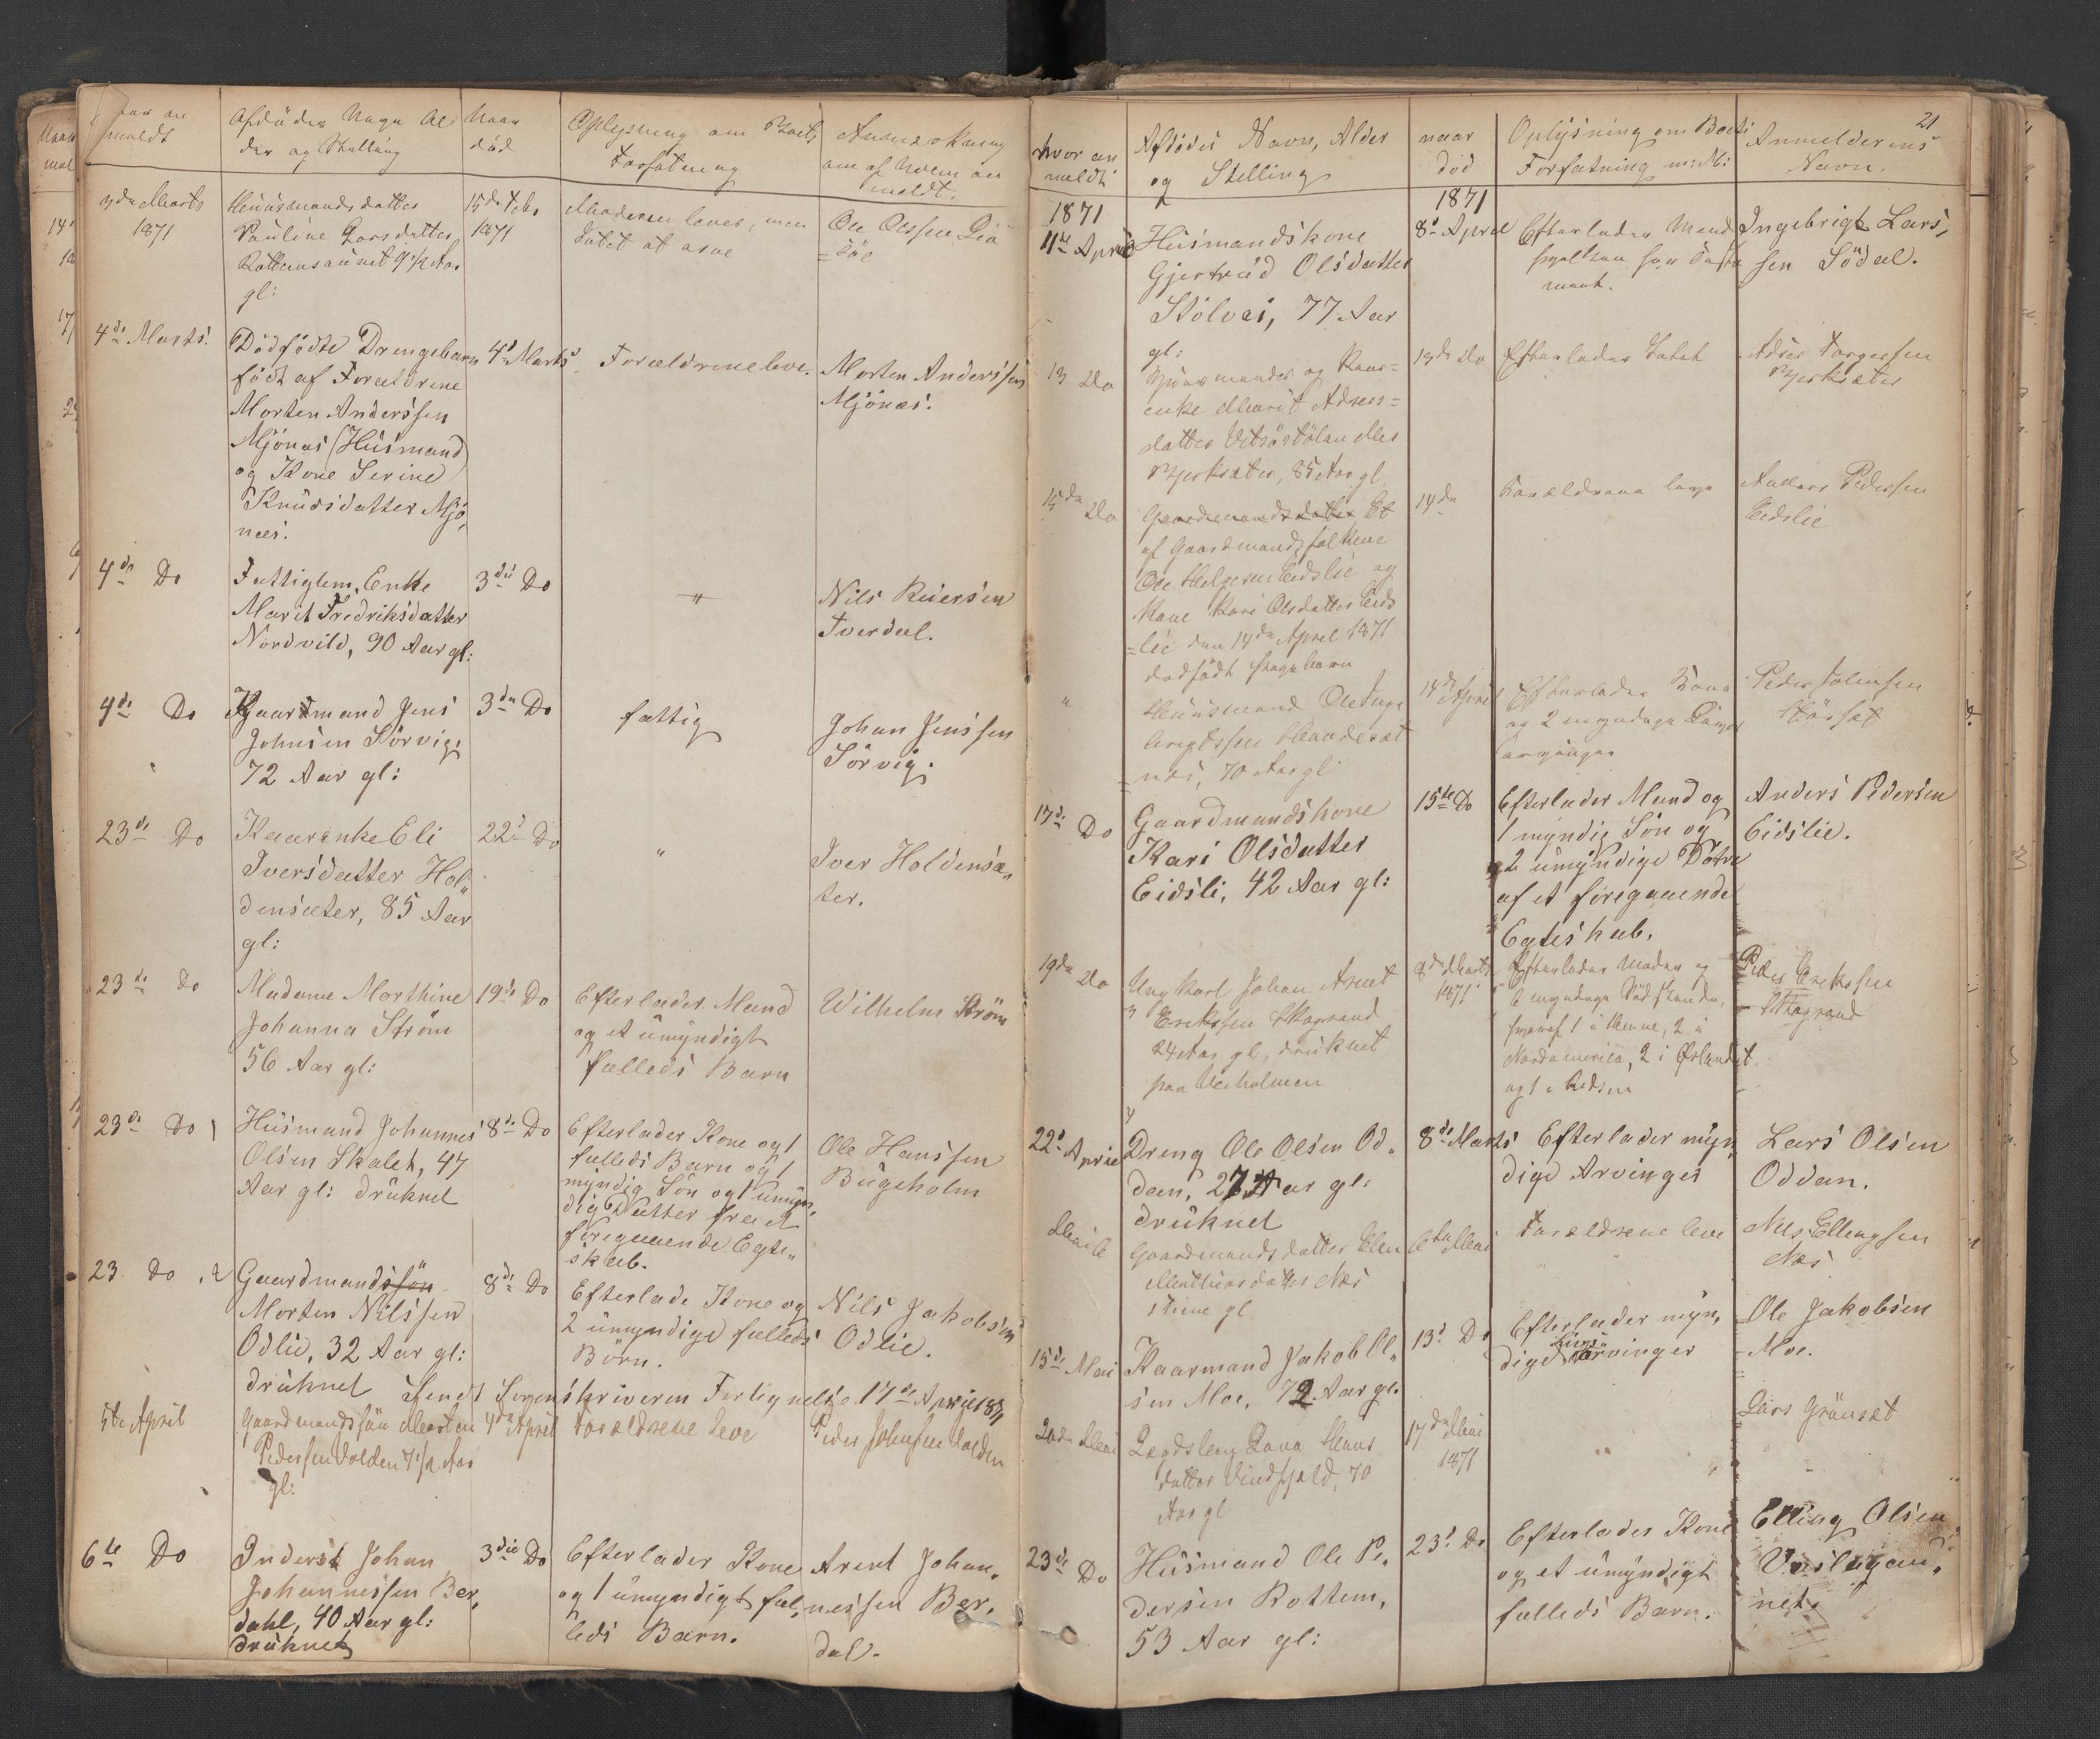 Afdødes Navn Al
der og Stilling
Naar
død
Oplysning om Boets
Forfatning
Anmærkning
om af hvem an
meldt.
3die Marts
1871
Huusmandsdatter
Pauline Larsdatter
Rottemsaunet 9 1/2 Aar
gl:
15de Febr
1871
Moderen lever, men
Intet at arve
Ole Olssen Lia
4de Marts.
Dödfödte Drengebarn
födt af Forældrene
Morten Anderssen
Mjönes (Husmand)
og Kone Serine
Knudsdatter Mjö,
nes.
4de Marts
Forældrene leve.
Morten Anderssen
Mjönes.
4de Do
Fattiglem, Enke
Marit Fredriksdatter
Nordvild, 90 Aar gl:
3die Do
"
Nils Reiersen
Tverdal.
4de Do
Kaarmand Jens
Johnsen Sörvig,
72 Aar gl:
3die Do
fattig
Johan Jenssen
Sörvig.
23de Do
Kaarenke Eli
Iversdatter Hol"
densæter, 85 Aar
gl:
22de Do
"
Iver Holdensæ,
ter.
23de Do
Madame Morthine
Johanna Ström
56 Aar gl:
19de Do
Efterlader Mand
og et umyndigt
fælleds Barn
Wilhelm Ström
23de Do 1
Husmand Johannes
Olsen Skalet, 47
Aar gl: druknet
8de Do
Efterlader Kone og 1
fælleds Barn og 1
myndig Sön og 1 umyn,
dig Datter fra et
foregaaende Egte,,
skab.
Ole Hanssen
Bugeholm
23 Do 2
Gaardmandssön
Morten Nilssen
Odlie, 32 Aar gl:
druknet
8de Do
Efterlade Kone og
2 umyndige fælleds
Börn.
Nils Jakobsen
Odlie.
Sendt Sorenskriveren Fortegnelse 17de April 1871
5te April
Gaardmandssön Morten
Pedersen Holden 7 1/2 Aar
gl:
4de April
Forældrene leve
Peder Johnsen Holden
6te Do
Inderst Johan
Johannessen Ber,
dahl, 40 Aar gl:
druknet
3die Do
Efterlader Kone
og 1 umyndigt fæl,
leds Barn.
Arent Johan,
nessen Ber,
dal.
21
hvor an
meldt
Afdödes Navn, Alder
og Stelling
naar
död
Oplysning om Boets
Forfatning m: M:
Anmelderens
Navn.
1871
11te April
Husmandskone
Gjertrud Olsdatter
Stölvei, 77 Aar
gl:
1871
8de April
Efterlader Mand
Ingebrigt Lars,
sen Södal.
13 Do
enke Marit
datter
85 Aar gl
13de Do
Efterlader Intet
Torgersen
15de Do
Gaardmandsdatter Et
af Gaardmandsfolkene
Ole Helgesen Eidslie og
Kone Kari Olsdatter Eids
=lie den 14de April 1871
dødfødt Pigebarn
14de
Forældrene leve
Anders Pedersen
Eidslie
"
Huusmand Ole Inge
brigtssen
næs, 70 Aar gl
14de April
Efterlader Kone
og 2 myndige
arvinger
Peder Johnsen
17de Do
Gaardmandskone
Kari Olsdatter
Eidsli, 42 Aar gl:
15de Do
Efterlader Mand og
1 myndig Sön og
2 umyndige Dötre
af et foregaaende
Egteskab.
Anders Pedersen
Eidslie.
19de Do
3
Ungkarl Johan Arnt
Erikssen Skagrand
24 Aar gl, druknet
paa Veiholmen
8de Marts
1871
Efterlader Moder og
6 myndige Södskende,
hvoraf 1 i Hevne, 2 i
Nordamerica, 2 i Örlandet
og 1 i
Peder Erikssen
Skagrand
22de April
4
Dreng Ole Olsen Od,
den, 27 Aar gl:
druknet
8de Marts
Efterlader myn,
dige Arvinger
Lars Olsen
Oddan.
Mai 6
Gaardmandsdatter Elen
Mathiasdatter Næs
gl
6te Mai
Forældrene leve
Nils Ellingsen
Næs
15de Mai
Kaarmand Jakob Ol,
sen Moe, 72 Aar gl.
13de Do
Efterlader myn,
dige Livs-
arvinger
Ole Jakobsen
Moe.
20de Mai
Lægdslem Lava Hans
datter Vindfjeld, 70
Aar gl
17de Mai
1871
"
Lars Grönset
23de Do
Husmand Ole Pe,
dersen Rottem,
53 Aar gl:
23de Do
Efterlader Kone
og et umyndigt
fælleds Barn.
Elling Olsen
net.